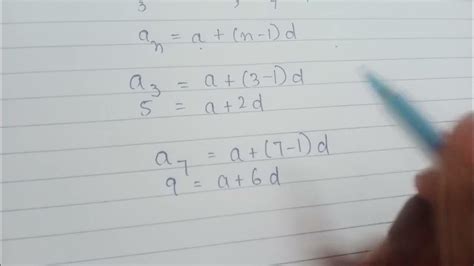 3 7
aₙ = a + (n-1)d
a₃ = a + (3-1)d
5 = a + 2d
a₇ = a + (7-1)d
9 = a + 6d